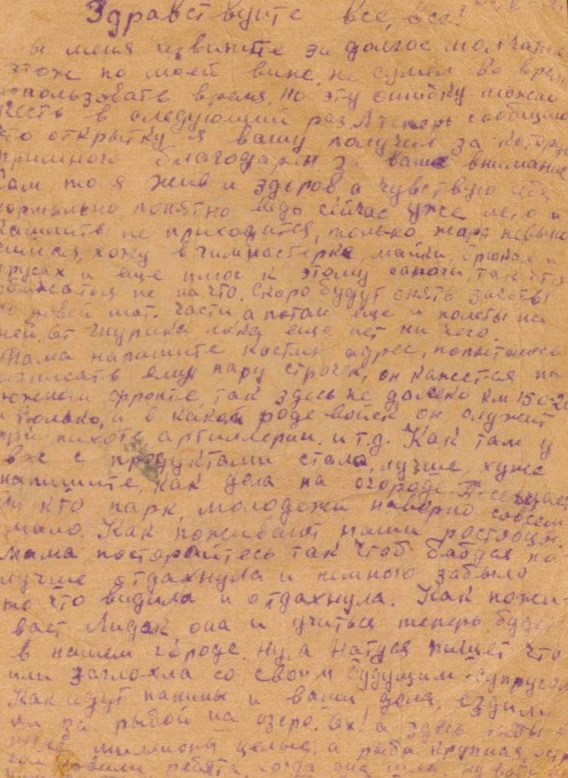 Здравствуйте все, все!
вы меня извините за долгое молчание
этож по моей вине, не сумел во время
использовать время, но эту ошибку можно
учесть в следующий раз. А теперь сообщаю
что открытку я вашу получил за которую
примного благодарен за ваше внимание
Сам то я жив и здоров а чувствую себя
нормально понятно ведь сейчас уже лето и
не приходится, только жара невыно
симая, хожу в гимнастерке, майки, брюках и
трусах и еще плюс к этому сапоги, так что
обижатся не на что. Скоро будут опять зачеты
по новой мат. части а потом еще и полеты на
ней. От пока еще нет ни чего.
Мама напишите Костин адрес, попытаюсь
написать ему пару строчек, он кажется на
южном фронте так здесь не далеко км 150-20
и только, и в какой роде войск он служит
при пехоте, артиллерии, и т.д. Как там у
вас с продуктами стало, лучше, хуже
напишите, как дела на огороде. Посещает
ли кто парк молодежи наверно совсем
мало. Как поживают наши ростовцы.
Мама постарайтесь так чтоб бабуся по
лучше отдахнула и немного забыла
то что видила и отдахнула. Как пожи
вает Лида
она и учиться теперь будет
в нашем городе. ну, а Натуся пишет что
или заглохла со своим будущим супругом
Как идут папины и ваши дела, ездили
ли за рыбой на озеро. эх! а здесь рыбы
миллионы целые, а рыба крупная
ребята, когда она шла